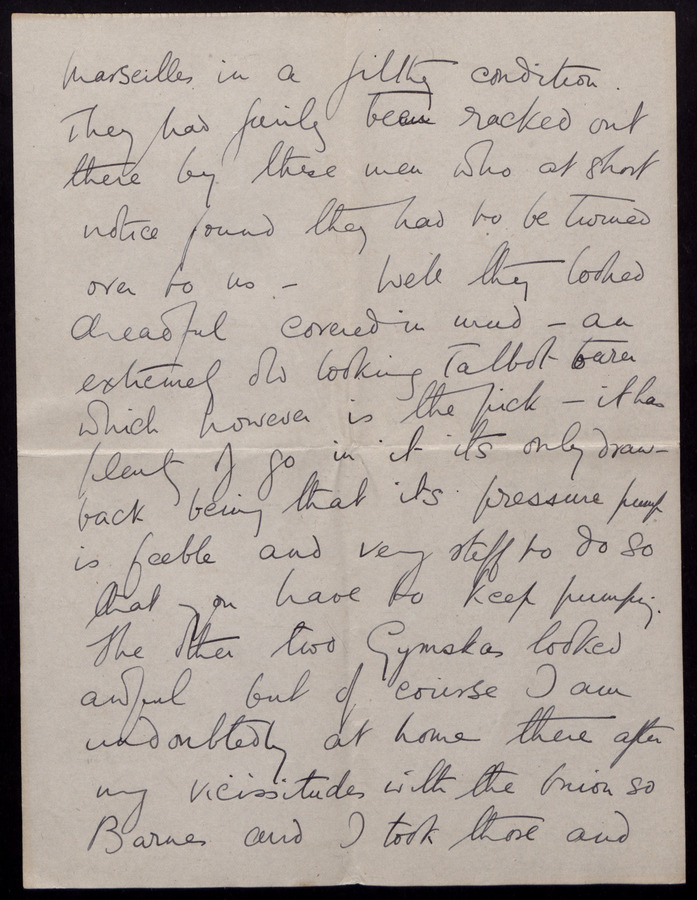 Marseilles in a filthy condition.
They had fairly been racked out
there by these men who at short
notice found they had to be turned
over to us - Well they looked
dreadful covered in mud - an
extremely old looking Talbot
which however is the pick - it has
plenty of go in it its only draw-
back being that its pressure pump
is feeble and very stiff to do so
that you have to keep pumping.
The other two looked
awful but of course I am
undoubtedly at home there after
my vicissitudes with the so
Barnes and I took those and